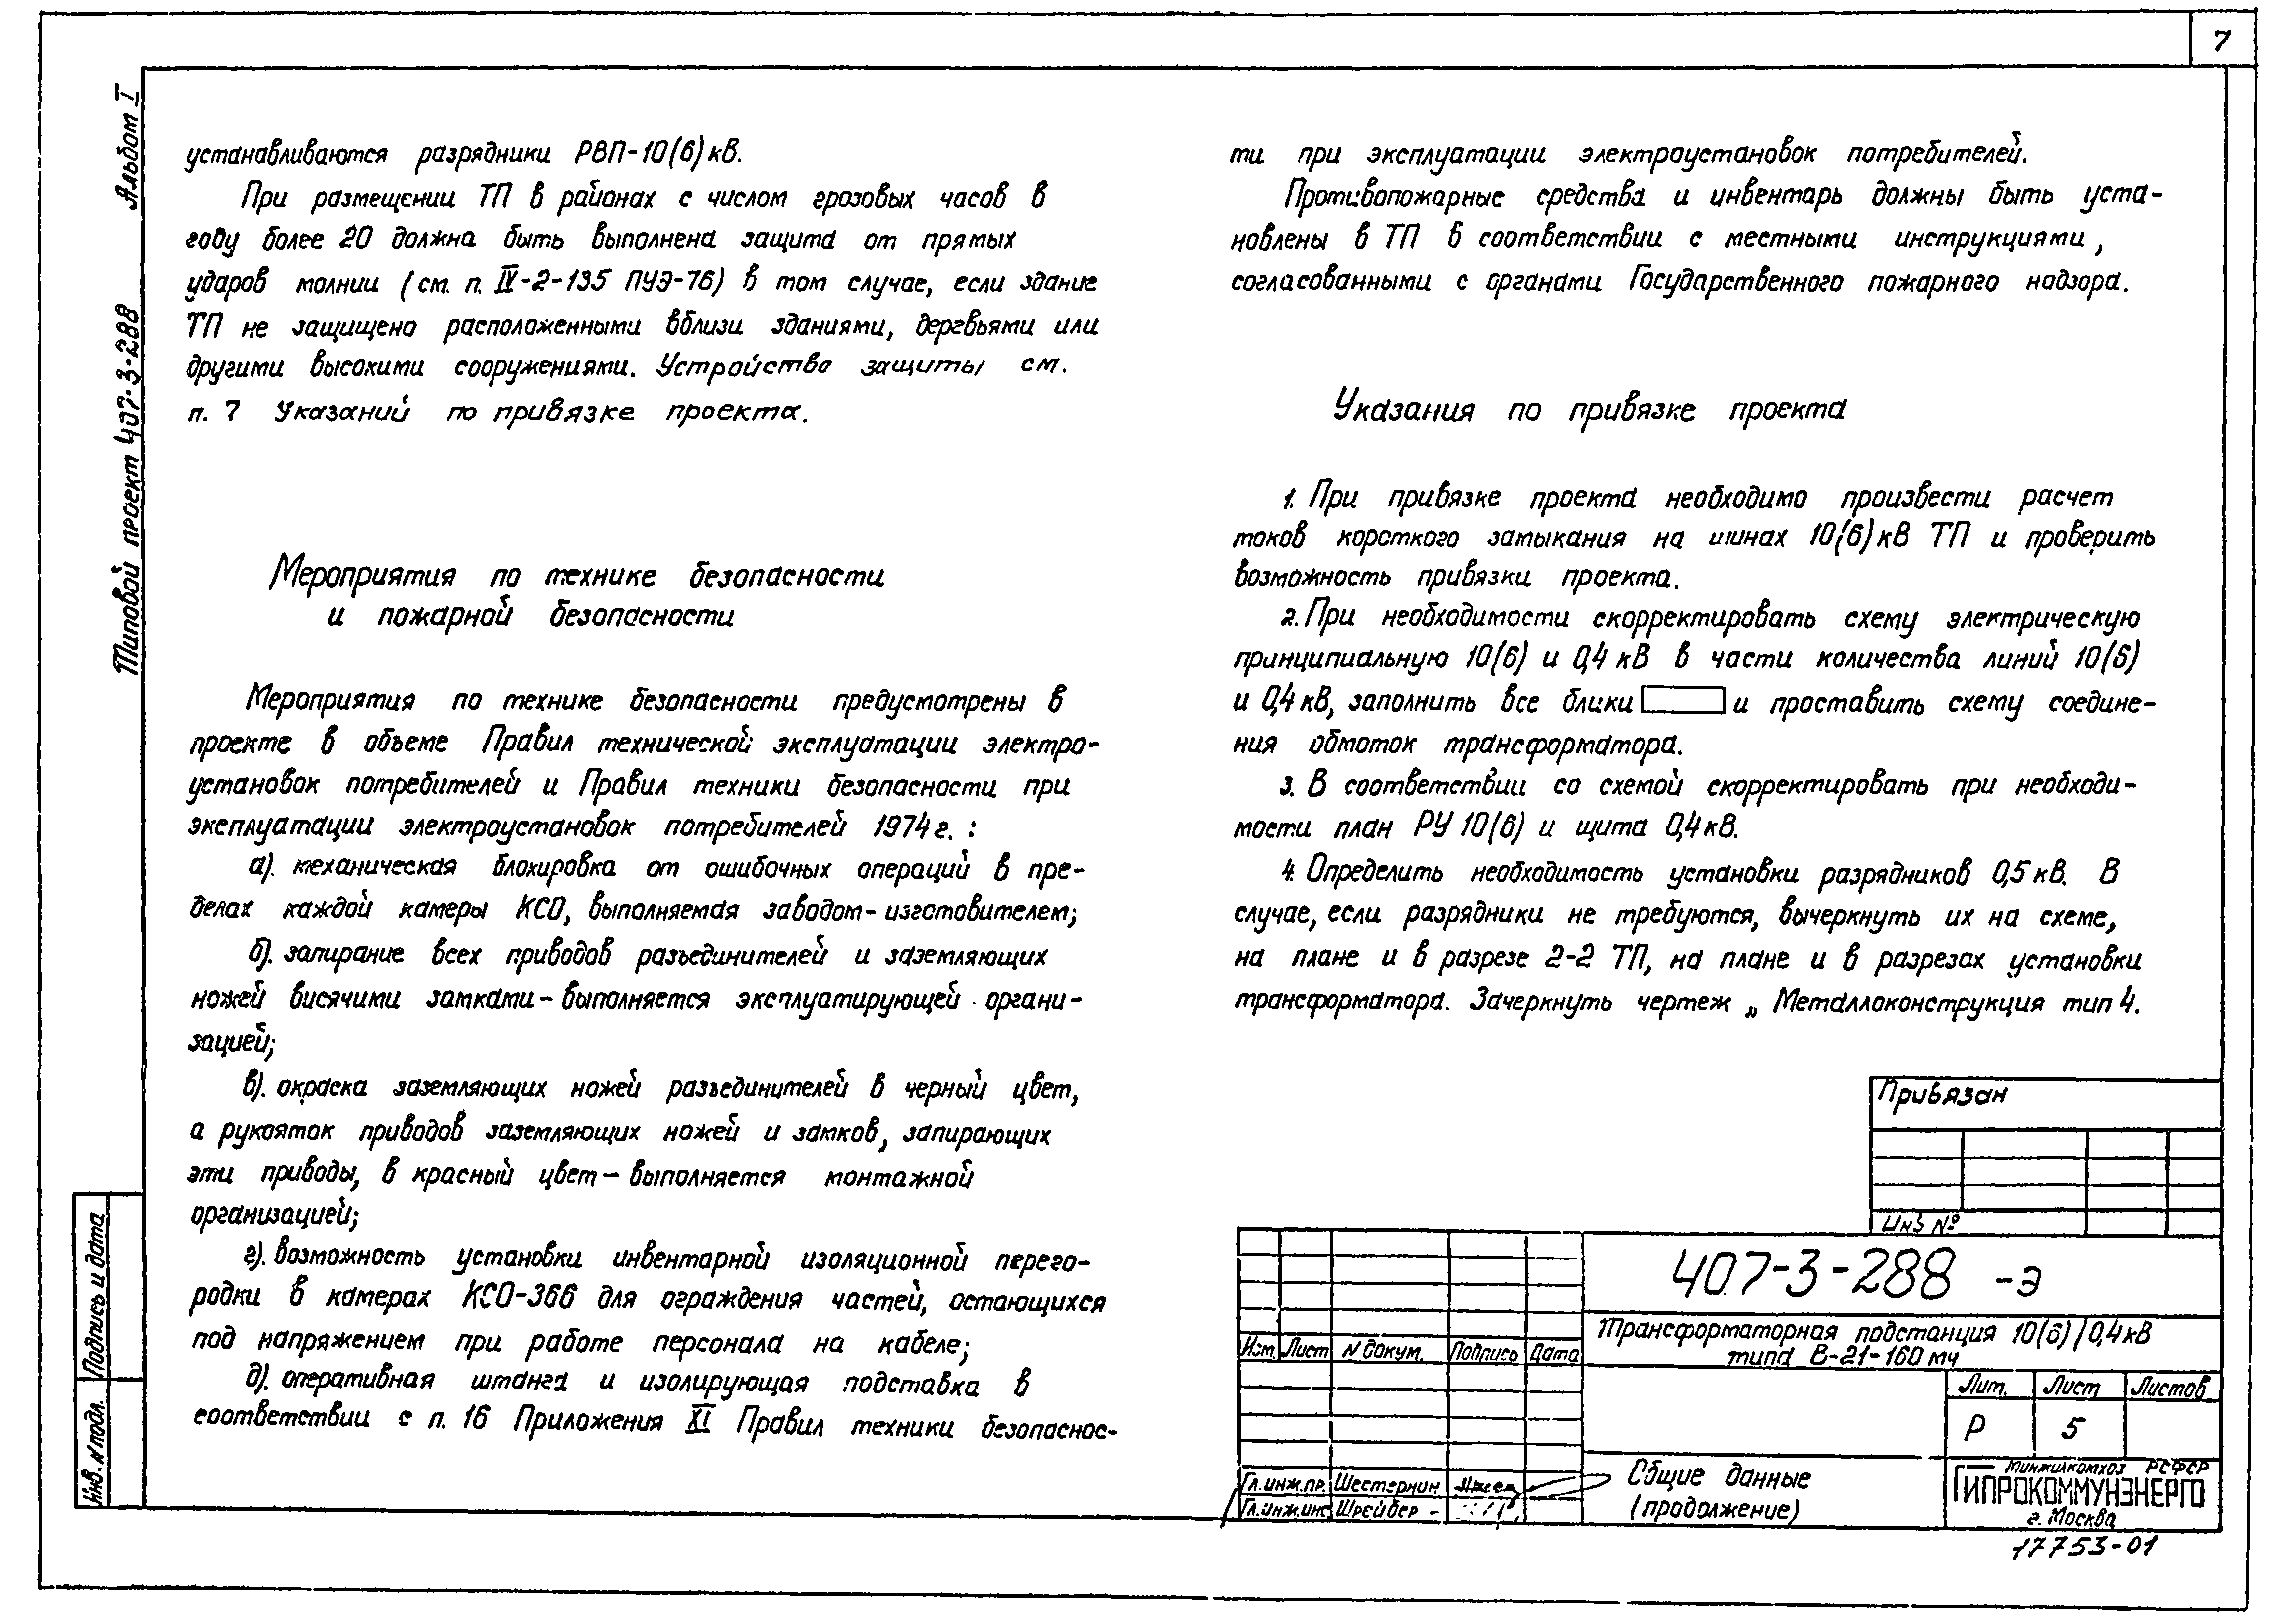 7
Альбом I
Типовой проект 407-3-288
устанавливаются разрядники РВП-10(6)кВ.
При размещении ТП в районах с числом грозовых часов в
году более 20 должна быть выполнена защита от прямых
ударов молнии (см. п. IV-2-135 ПУЭ-76) в том случае, если здание
ТП не защищено расположенными вблизи зданиями, деревьями или
другими высокими сооружениями. Устройство защиты см.
п. 7 Указаний по привязке проекта.
Мероприятия по технике безопасности
и пожарной безопасности
Мероприятия по технике безопасности предусмотрены в
проекте в объеме Правил технической эксплуатации электро-
установок потребителей и Правил техники безопасности при
эксплуатации электроустановок потребителей 1974г. :
а). механическая блокировка от ошибочных операций в пре-
делах каждой камеры КСО, выполняемая заводом-изготовителем;
б). запирание всех приводов разъединителей и заземляющих
ножей висячими замками-выполняется эксплуатирующей органи-
зацией;
в). окраска заземляющих ножей разъединителей в черный цвет,
а рукояток приводов заземляющих ножей и замков, запирающих
эти приводы, в красный цвет-выполняется монтажной
организацией;
г). возможность установки инвентарной изоляционной перего-
родки в камерах КСО-366 для ограждения частей, остающихся
под напряжением при работе персонала на кабеле;
д). оперативная штанга и изолирующая подставка в
соответствии с п. 16 Приложения XI Правил техники безопаснос-
ти при эксплуатации электроустановок потребителей.
Противопожарные средства и инвентарь должны быть уста-
новлены в ТП в соответствии с местными инструкциями,
согласованными с органами Государственного пожарного надзора.
Указания по привязке проекта
1. При привязке проекта необходимо произвести расчет
токов короткого замыкания на шинах 10(6)кВ ТП и проверить
возможность привязки проекта.
2. При необходимости скорректировать схему электрическую
принципиальную 10(6) и 0,4 кВ в части количества линий 10(6)
и 0,4кВ, заполнить все блики и проставить схему соедине-
ния обмоток трансформатора.
3. В соответствии со схемой скорректировать при необходи-
мости план РУ 10(6) и щита 0,4кВ.
4. Определить необходимость установки разрядников 0,5кВ. В
случае, если разрядники не требуются, вычеркнуть их на схеме,
на плане и в разрезе 2-2 ТП, на плане и в разрезах установки
трансформатора. Зачеркнуть чертеж „ Металлоконструкция тип 4.
Привязан
Инв №
407-3-288 -Э
Трансформаторная подстанция 10(6)/0,4кВ
типа В-21-160 м4
Изм. Лист N докум. Подпись Дата
Лит. Лист Листов
Р 5
Гл. инж.пр. Шестернин
Гл.инж.инс. Шрейбер
Общие данные
(продолжение)
Минжилкомхоз РСФСР
ГИПРОКОММУНЭНЕРГО
г. Москва
17753-01
Подпись и дата
Инв. N подл.